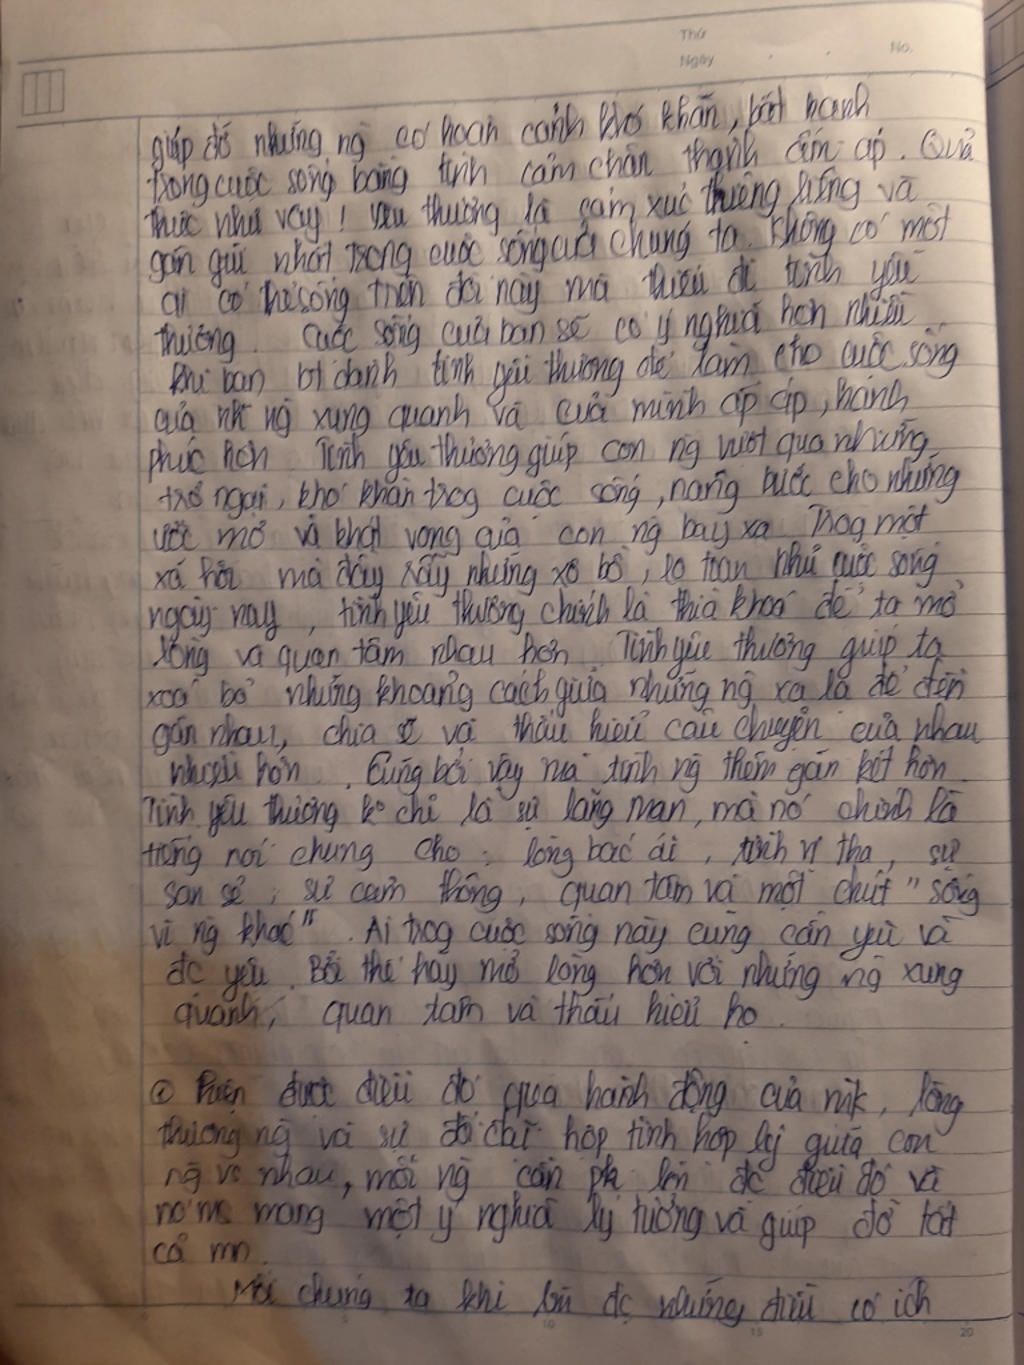 Thứ
Ngày
No.
giúp đỡ những ng có hoàn cảnh khó khăn, bất hạnh
trong cuộc sống bằng tình cảm chân thành ấm áp. Quả
thực như vậy! yêu thương là cảm xúc thiêng liêng và
gần gũi nhất trong cuộc sống của chúng ta. Không có một
ai có thể sống trên đời này mà thiếu đi tình yêu
thương. Cuộc sống của bạn sẽ có ý nghĩa hơn nhiều
khi bạn dành tình yêu thương để làm cho cuộc sống
của ng xung quanh và của mình ấp áp, hạnh
phúc hơn. Tình yêu thương giúp con ng vượt qua những
trở ngại, khó khăn trog cuộc sống, nâng bước cho những
ước mơ và khát vọng của con ng bay xa. Trog một
xã hội mà đầy rẫy những xô bồ, lo toan như cuộc sống
ngày nay, tình yêu thương chính là thìa khoá để ta mở
lòng và quan tâm nhau hơn. Tình yêu thương giúp ta
xoá bỏ những khoảng cách giữa những ng xa lạ để đến
gần nhau, chia sẻ và thấu hiểu câu chuyện của nhau
nhiều hơn. Cũng bởi vậy mà tình ng thêm gắn kết hơn.
Tình yêu thương ko chỉ là sự lãng mạn, mà nó chính là
tiếng nói chung cho: lòng bác ái, tính vị tha, sự
san sẻ, sự cảm thông, quan tâm và một chút "sống
vì ng khác". Ai trog cuộc sống này cũng cần yêu và
đc yêu. Bởi thế hãy mở lòng hơn với những ng xung
quanh, quan tâm và thấu hiểu họ.
được điều đó qua hành động của lòng
thương ng và sự hợp tình hợp lý giữa con
ng vs nhau, mỗi ng cần đc điều đó và
mang một ý nghĩa lý tưởng và giúp đỡ tất
cả mn.
Mỗi chúng ta khi đc những điều có ích
10
15
20